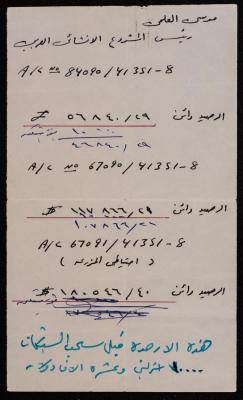 موسى العلمي
رئيس المشروع الإنشائي العربي
A/C No 84090/41351-8
الرصيد دائن £ ٥٦٨٤٠/٢٩
١٠٠٠٠
٤٦٨٤٠/٢٩
A/C No 67090/41351-8
الرصيد دائن £ ١١٧٨٦٦/٢٩
١٠٧٨٦٦/٢٩
A/C 67091/41351-8
( احتياطي المزرعة )
الرصيد دائن £ ١٨٠٥٤٦/٤٠
هذه الارصدة قبل سحب الشيكات
١٠٠٠٠ استرليني وعشرة الاف دولار